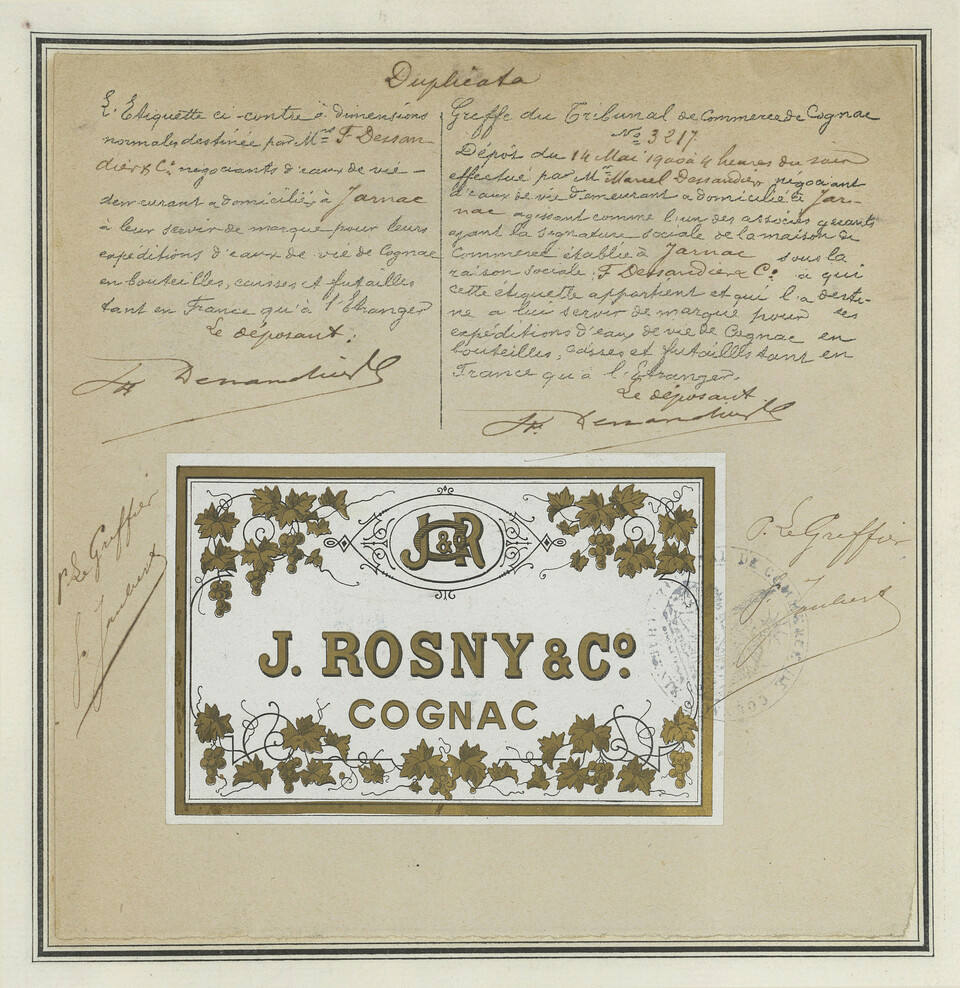 Duplicata
L'Etiquette ci-contre à dimensions
normales destinée par Mrs F Dessan-
dier & Co négociants d'eaux de vie -
demeurant & domiciliés à Jarnac
à leur servir de marque pour leurs
expéditions d'eaux de vie de Cognac
en bouteilles, caisses et futailles
tant en France qu'à l'Etranger
Le déposant:
Greffe du Tribunal de Commerce de Cognac
No 3217.
Dépôt du 14 Mai 1900 à 4 heures du soir
effectué par Mr Marcel Dessandier négociant
d'eaux de vie demeurant & domicilié à Jar-
nac agissant comme l'un des associés gérants
ayant la signature sociale de la maison de
Commerce établie à Jarnac sous la
raison sociale, F Dessandier & Co à qui
cette étiquette appartient et qui l'a desti-
né à lui servir de marque pour ses
expéditions d'eaux de vie de Cognac en
bouteilles, caisses et futailles tant en
France qu'à l'Etranger.
Le déposant
P. Le Greffier
J. Jaubert
P. Le Greffier
J. Jaubert
J & Co R
J. ROSNY & Co
COGNAC